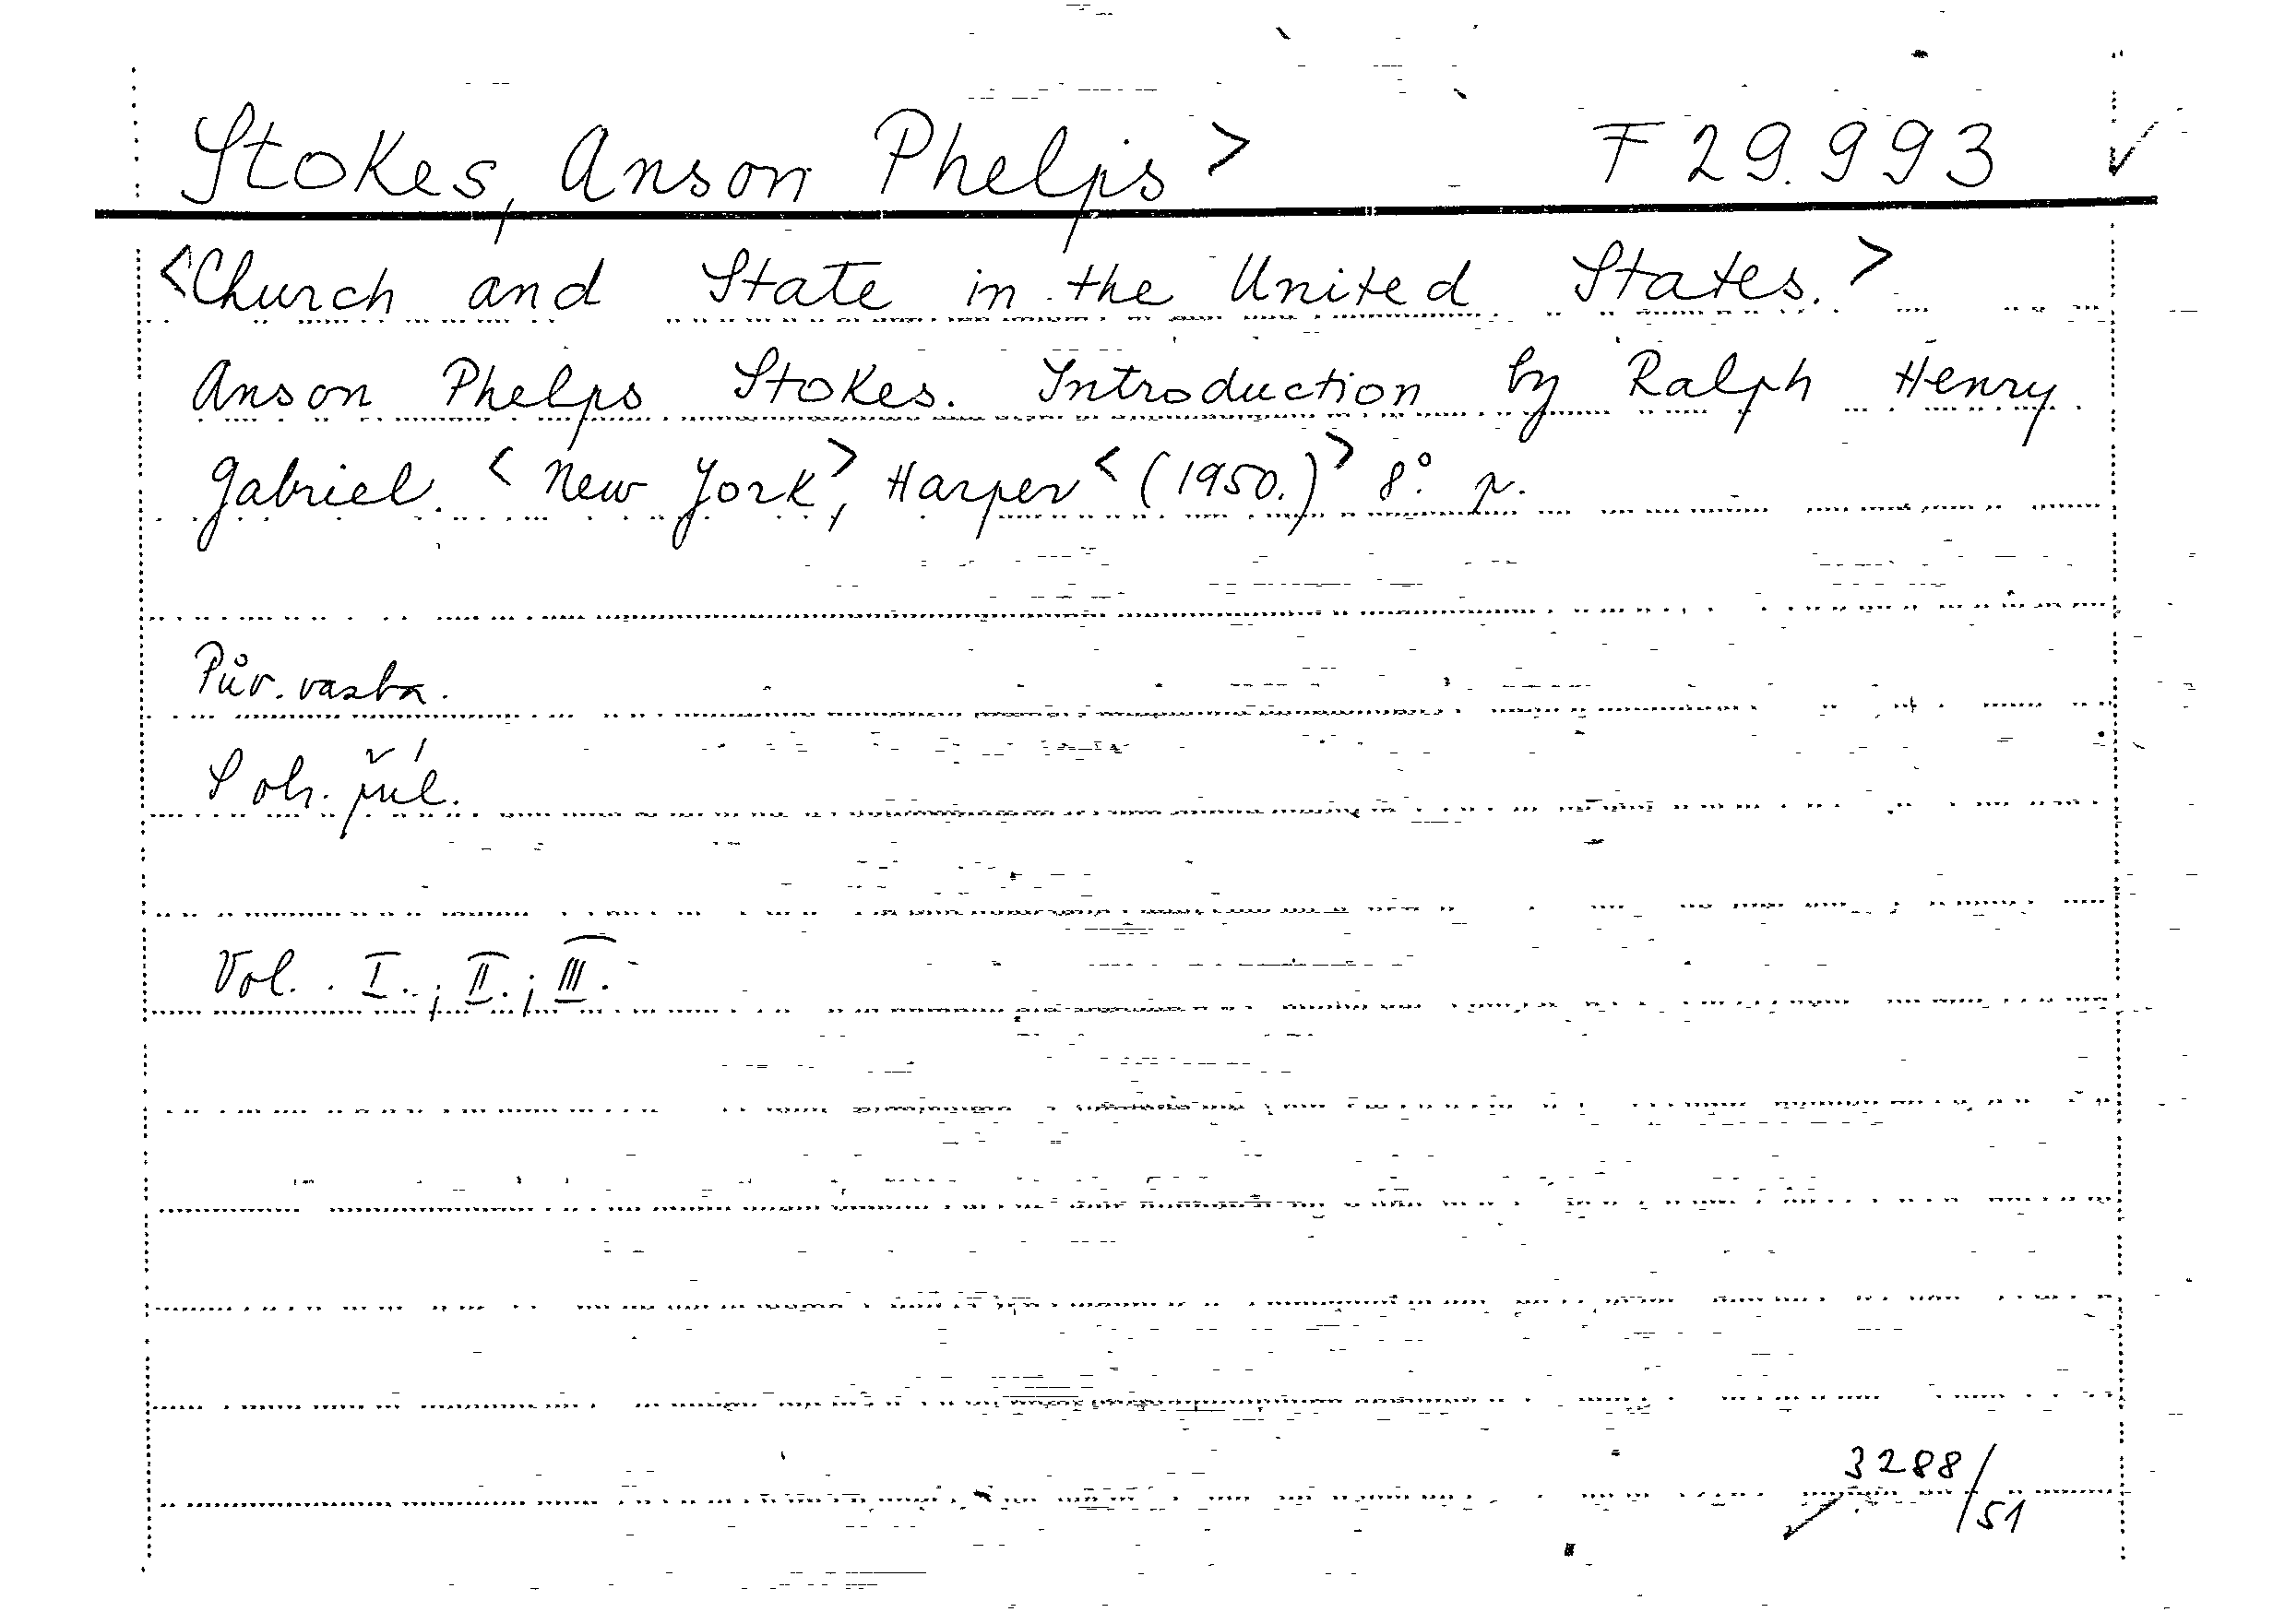 Stokes, Anson Phelps > F 29.993 ✓
<Church and State in the United States.>
Anson Phelps Stokes. Introduction by Ralph Henry
Gabriel. <New York>, Harper <(1950.)> 8° p.
Pův. vazba.
S obr. příl.
Vol. I.; II.; III.
3288/51